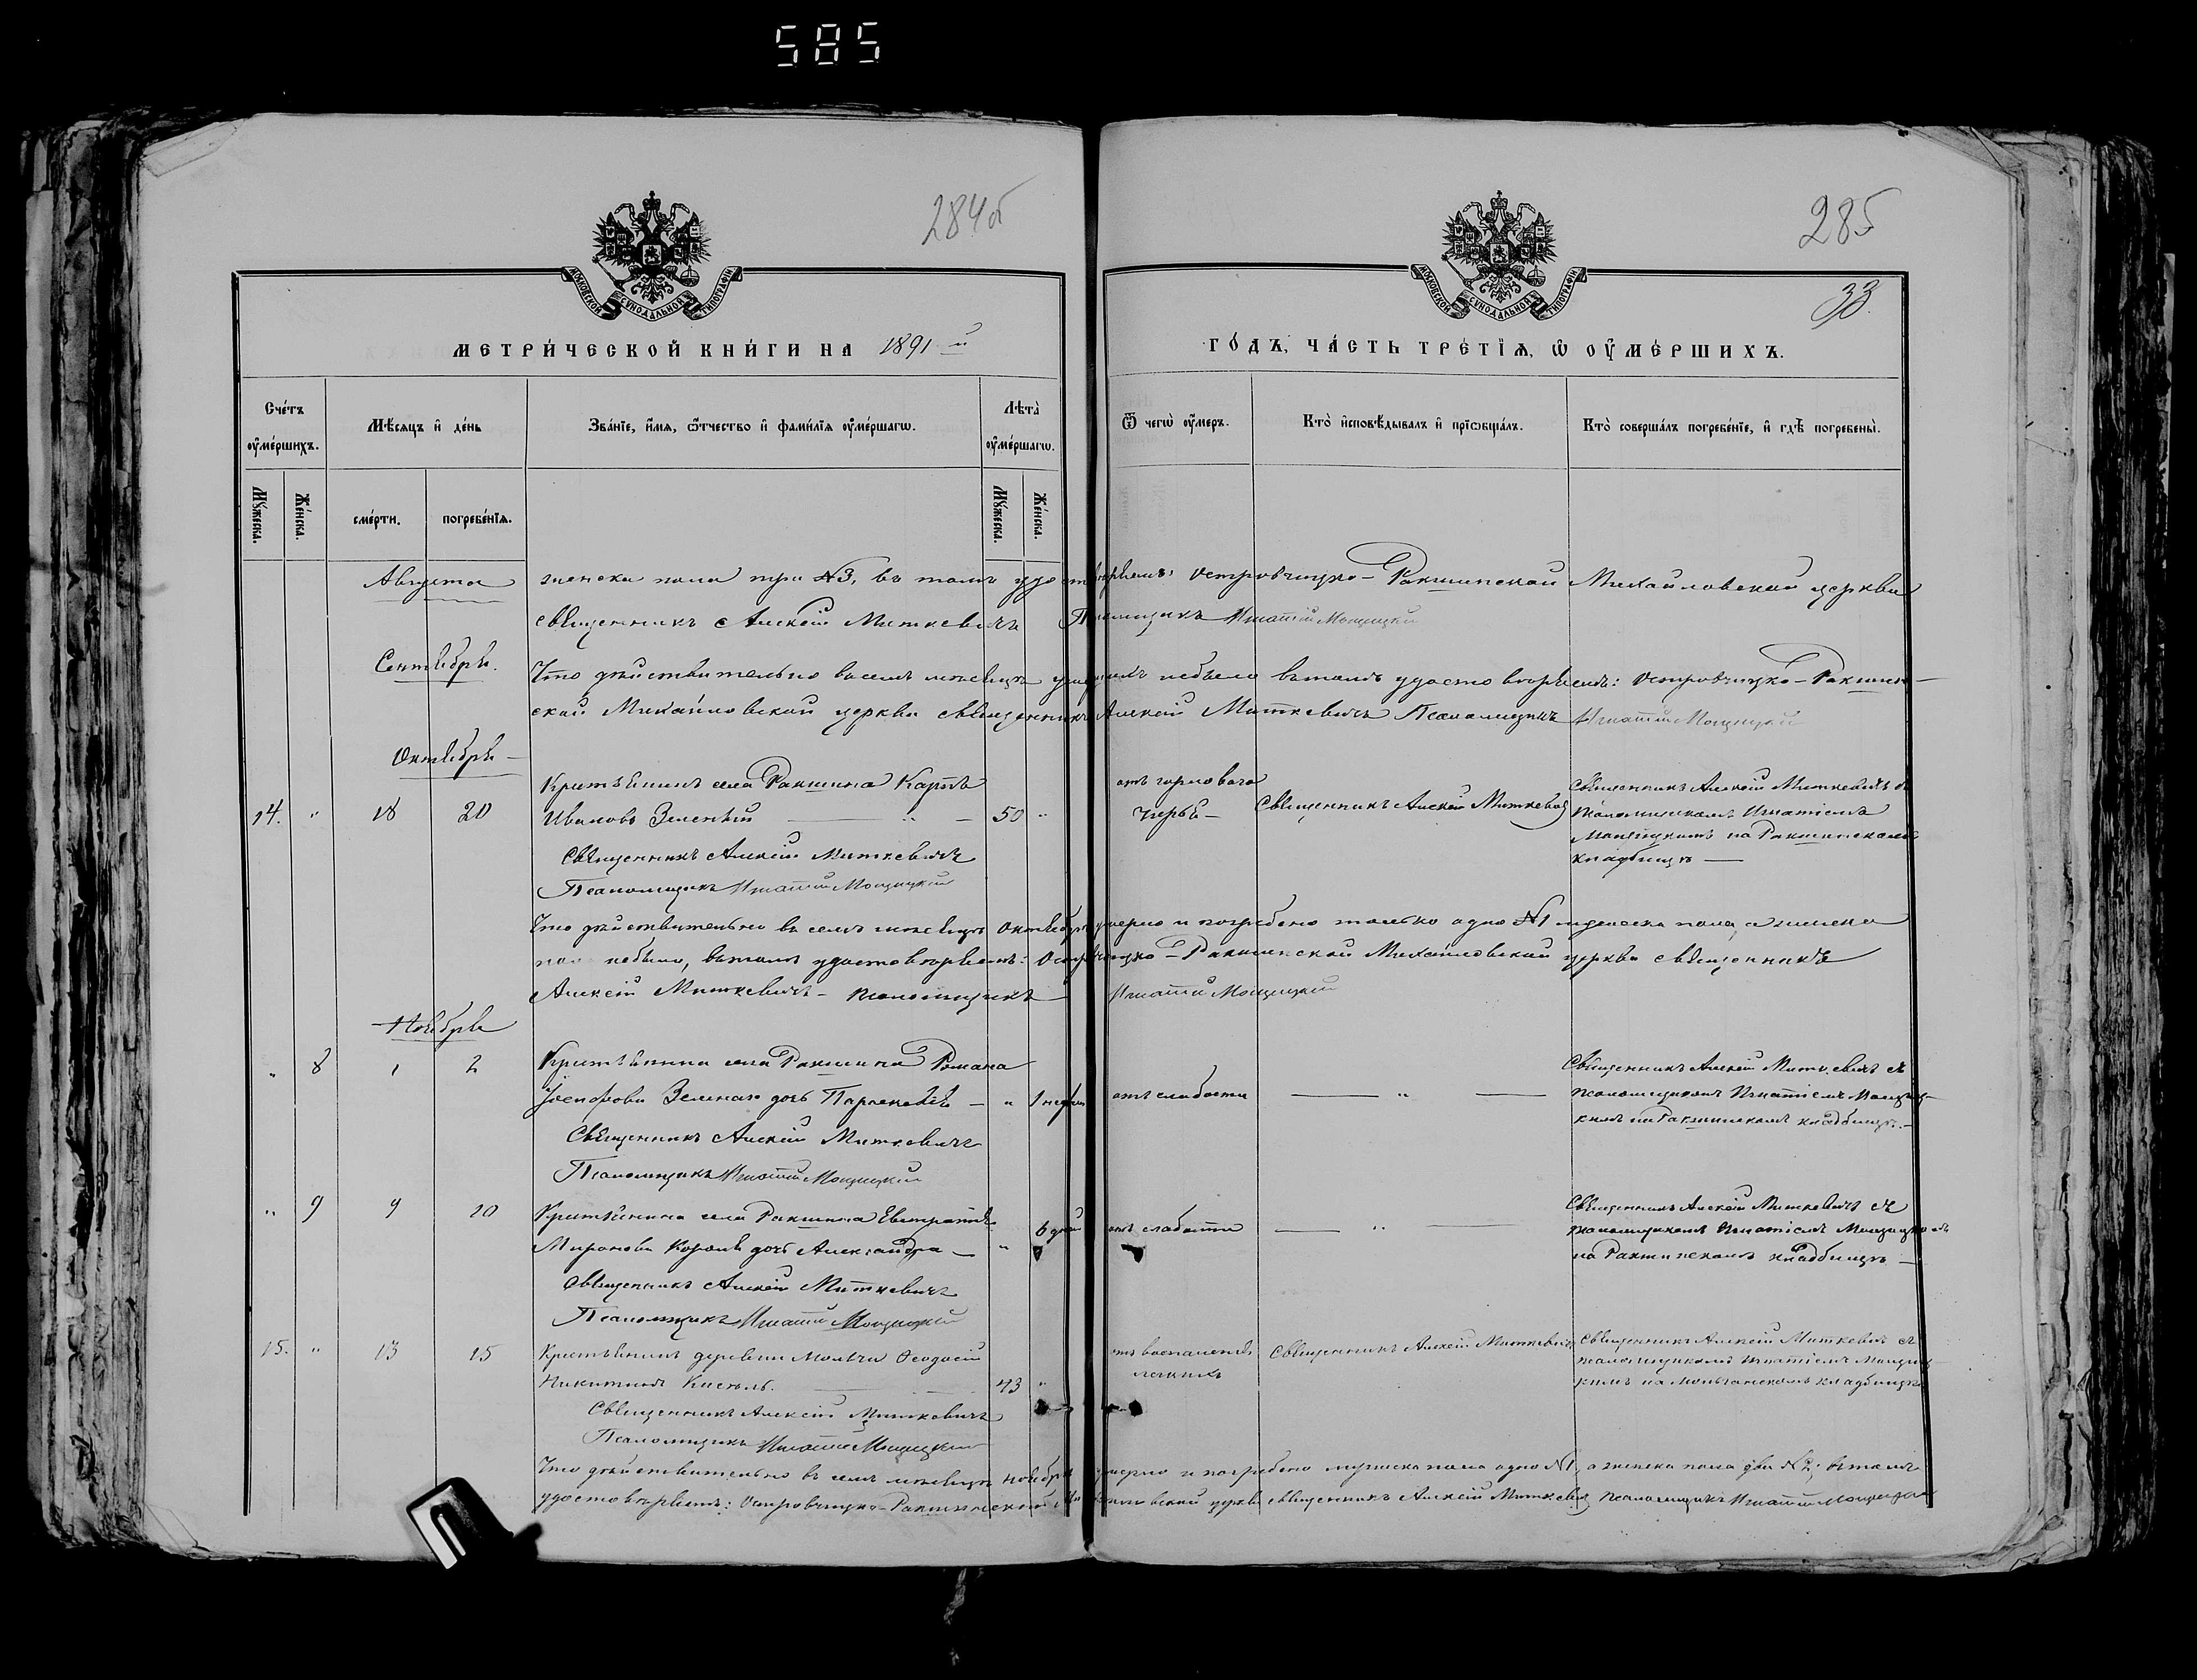 585
284об
285
33.
МОСКОВСКОЙ СУНОДАЛЬНОЙ ТИПОГРАФІИ
МОСКОВСКОЙ СУНОДАЛЬНОЙ ТИПОГРАФІИ
МЕТРИ́ЧЕСКОЙ КНИ́ГИ НА 1891 й
ГО́ДЪ, ЧА́СТЬ ТРЕ́ТІѦ, Ѡ ОУМЕ́РШИХЪ.
Сче́тъ оуме́ршихъ.
Мѣ́сяцъ и де́нь
Зва́нїе, и́мя, ѻ́тчество и фами́лїя оуме́ршагѡ.
Лѣта̀ оуме́ршагѡ.
Ѿ чегѡ̀ оу́меръ.
Кто̀ исповѣ́дывалъ и прїѡбща́лъ.
Кто̀ соверша́лъ погребе́нїе, и гдѣ̀ погребены̀.
Му́жеска.
Же́нска.
сме́рти.
погребе́нїя.
Му́жеска.
Же́нска.
Августа женска пола три №3, въ томъ удостовѣряемъ: Островчицко-Ракшинской Михайловской церкви
священникъ Алексій Миткевичъ Псаломщикъ Игнатій Мощицкій
Сентябрь. Что дѣйствительно въ семъ мѣсяцѣ умершихъ небыло въ томъ удостовѣряемъ: Островчицко-Ракшин-
ской Михайловской церкви священникъ Алексій Миткевичъ Псаломщикъ Игнатій Мощицкій
Октябрь
Крестьянинъ села Ракшина Карпъ
14. " 18 20 Ивановъ Зеленый — " — 50 "
отъ горловаго
Священникъ Алексій Миткевичъ
Священникъ Алексій Миткевичъ съ
Псаломщикомъ Игнатіемъ
Мощицкимъ на Ракшинскомъ
кладбищѣ —
Священникъ Алексій Миткевичъ
Псаломщикъ Игнатій Мощицкій
Что дѣйствительно въ семъ мѣсяцѣ Октябрѣ умерло и погребено только одно №1 мужеска пола, а женска
пола небыло, въ томъ удостовѣряемъ: Островчицко-Ракшинской Михайловской церкви священникъ
Алексій Миткевичъ — псаломщикъ Игнатій Мощицкій
Ноябрь
" 8 1 2 Крестьянина села Ракшина Романа
Зеленаго дочь Параскевія — "
отъ слабости — " —
Священникъ Алексій Миткевичъ съ
псаломщикомъ Игнатіемъ Мощиц-
кимъ на Ракшинскомъ кладбищѣ. —
Священникъ Алексій Миткевичъ
Псаломщикъ Игнатій Мощицкій
" 9 9 10 Крестьянина села Ракшина Евстратія
Миронова Короля дочь Александра — " 6 дней
отъ слабости — " —
Священникъ Алексій Миткевичъ съ
псаломщикомъ Игнатіемъ Мощицкимъ
на Ракшинскомъ кладбищѣ —
Священникъ Алексій Миткевичъ
Псаломщикъ Игнатій Мощицкій
15. " 13 15 Крестьянинъ деревни Молчи Ѳеодосій
Никитинъ Кисель. — 43 "
отъ воспаленія
легкихъ
Священникъ Алексій Миткевичъ
Священникъ Алексій Миткевичъ съ
псаломщикомъ Игнатіемъ Мощиц-
кимъ на Молчанскомъ кладбищѣ
Священникъ Алексій Миткевичъ
Псаломщикъ Игнатій Мощицкій
Что дѣйствительно въ семъ мѣсяцѣ ноябрѣ умерло и погребено мужеска пола одно №1, а женска пола два №2, въ томъ
удостовѣряемъ: Островчицко-Ракшинской Михайловской церкви священникъ Алексій Миткевичъ, псаломщикъ Игнатій Мощицкій